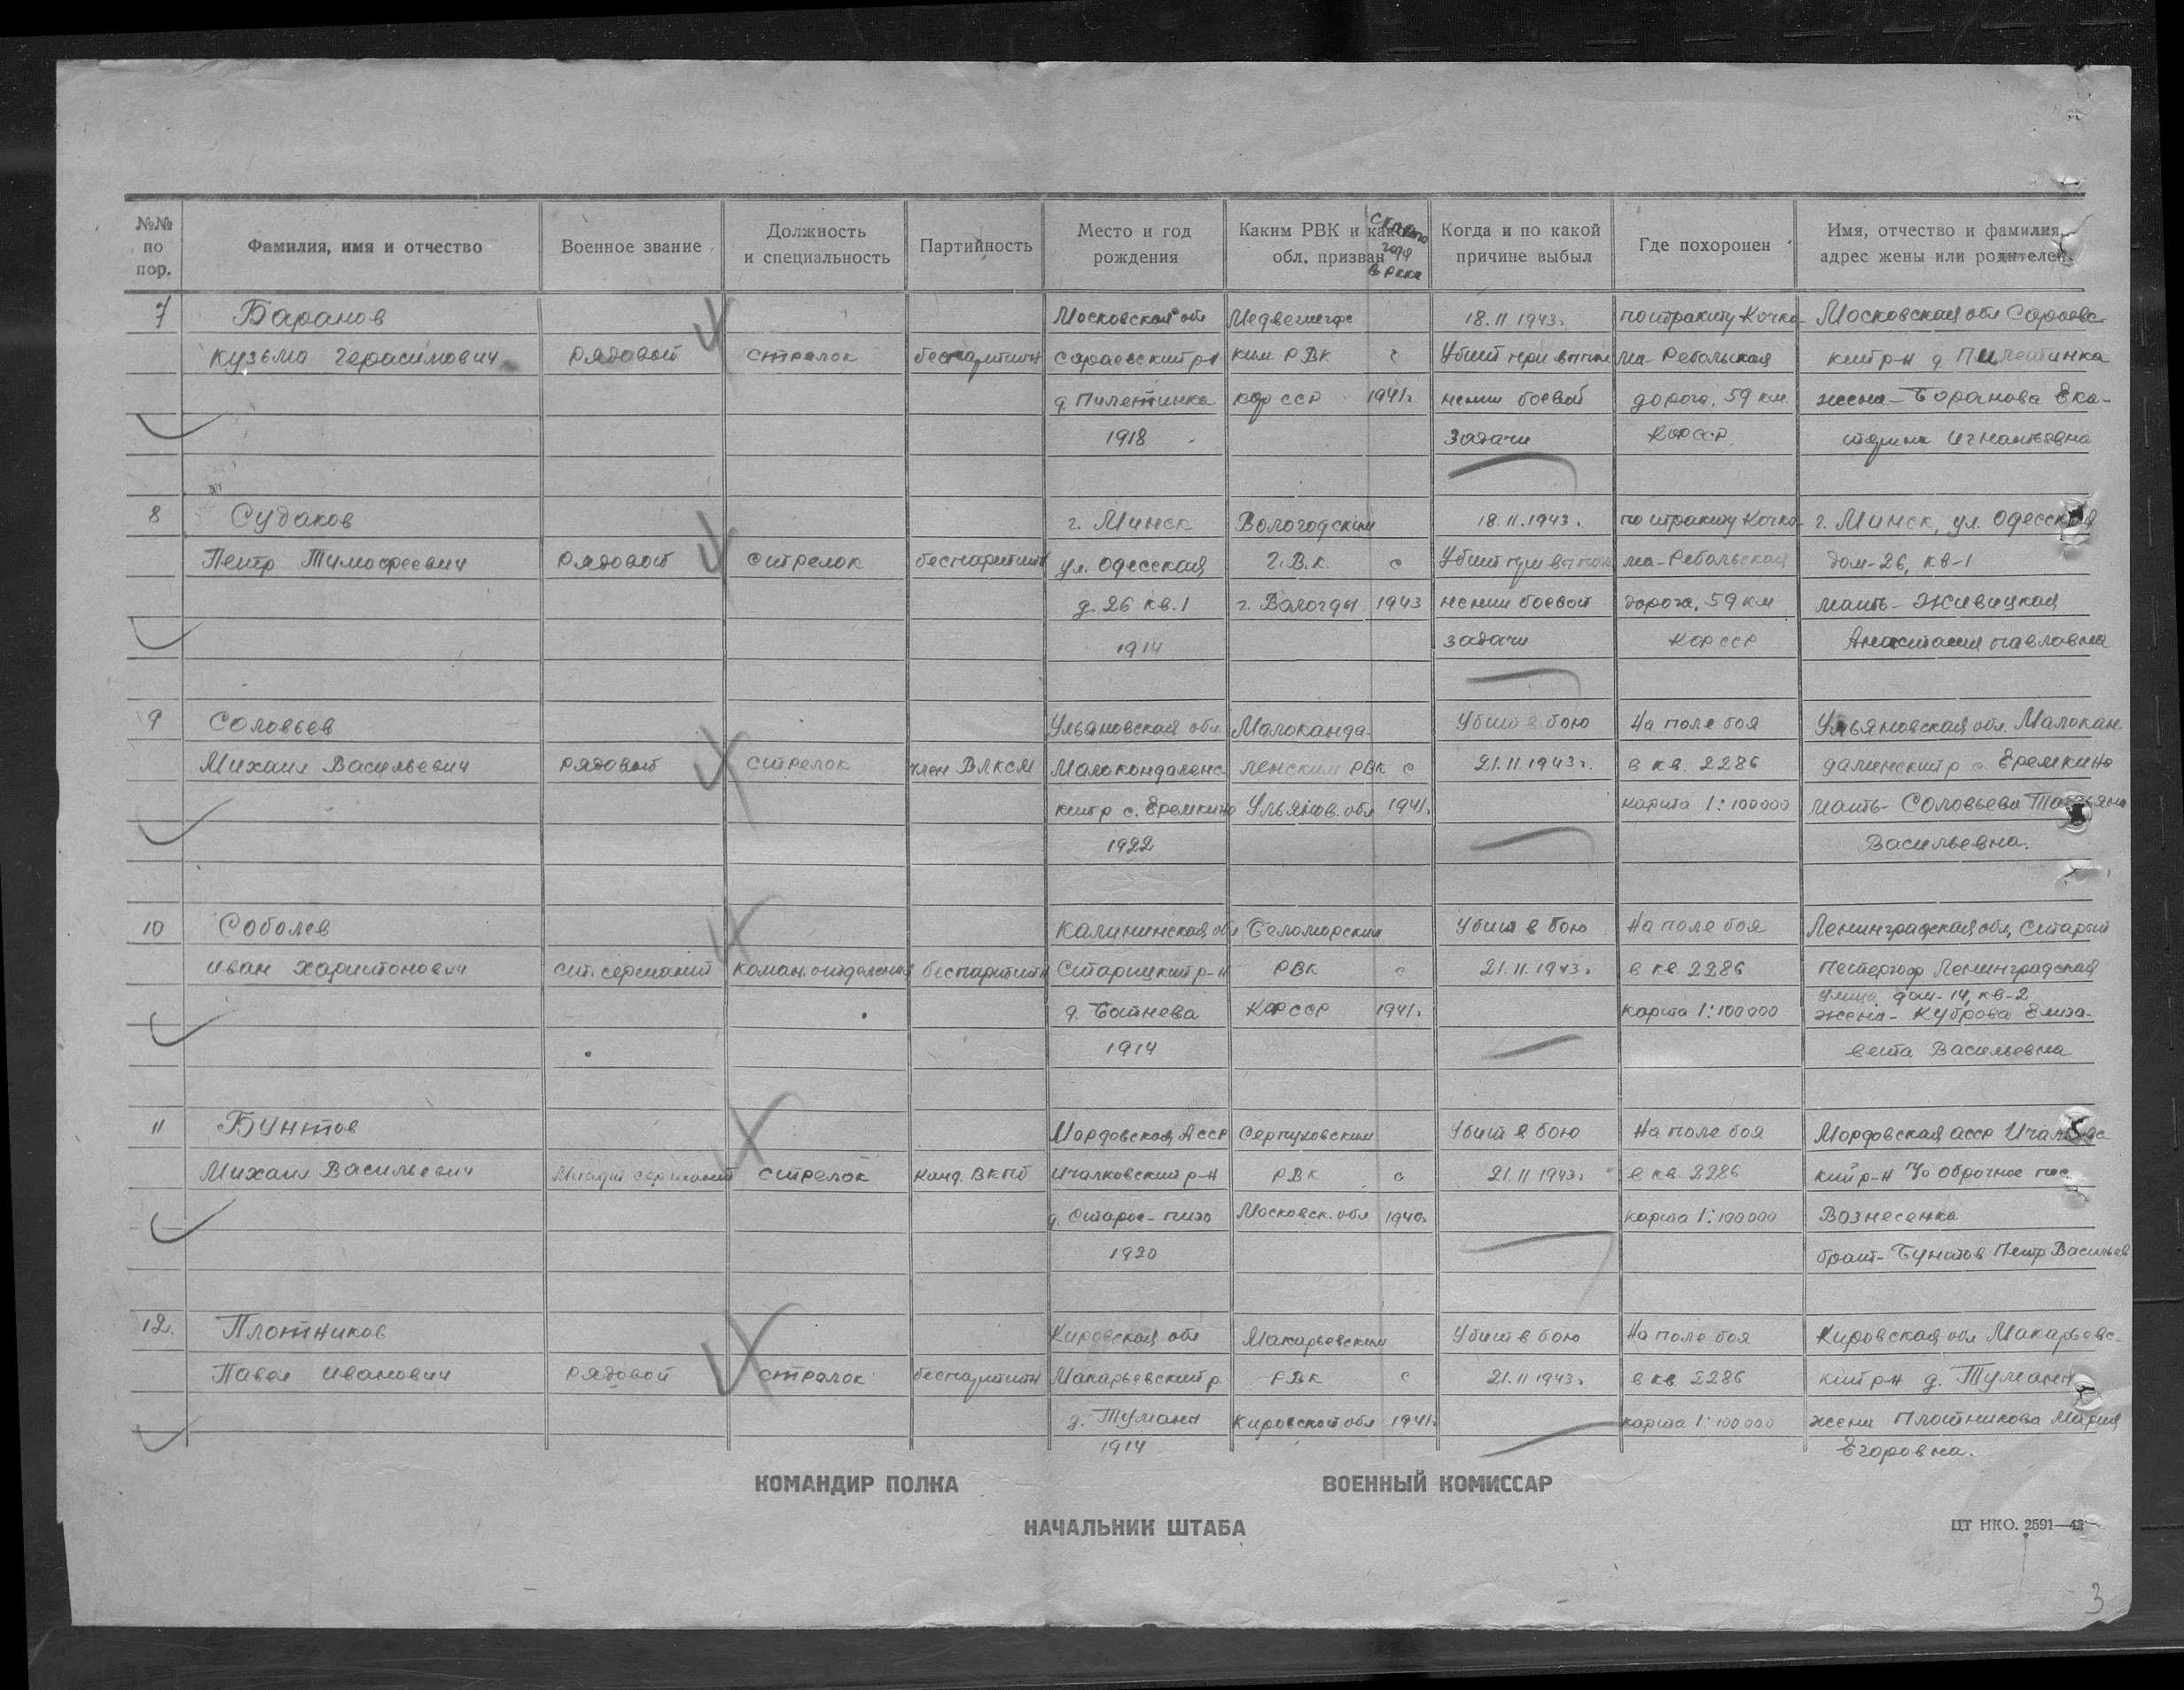 №№ по пор.
Фамилия, имя и отчество
Военное звание
Должность и специальность
Партийность
Место и год рождения
Каким РВК и какой обл. призван
С какого года в РККА
Когда и по какой причине выбыл
Где похоронен
Имя, отчество и фамилия, адрес жены или родителей
7 Баранов Московская обл Медвежегорс 18.11.1943г. по тракту Кочко- Московская обл Сараевс-
Кузьма Герасимович рядовой стрелок беспартийн Сараевский р-н ким РВК с Убит при выпол ма-Ребольская кий р-н д Пилетинка
д. Пилетинка КФССР 1941г. нении боевой дорога, 59 км. жена-Баранова Ека-
1918 задачи КФССР терина Игнатьевна
8 Судаков г. Минск Вологодским 18.11.1943г. по тракту Кочко- г. Минск, ул. Одесская
Петр Тимофеевич рядовой стрелок беспартийн ул. Одесская Г.В.К. с Убит при выпол ма-Ребольская дом-26, кв-1
д. 26 кв. 1 г. Вологды 1943 нении боевой дорога, 59 км мать-Живицкая
1914 задачи КФССР Анастасия Павловна
9 Соловьев Ульяновская обл. Малоканда- Убит в бою На поле боя Ульяновская обл. Малокан-
Михаил Васильевич рядовой стрелок член ВЛКСМ Малокондаленс ленским РВК с 21.11.1943г. в кв. 2286 далинский р с. Еремкино
кий р с. Еремкино Ульянов. обл 1941г. карта 1:100000 мать-Соловьева Татьяна
1922 Васильевна.
10 Соболев Калининская обл Беломорским Убит в бою На поле боя Ленинградская обл, Старый
Иван Харитонович ст. сержант коман. отделения беспартийн Старицкий р-н РВК с 21.11.1943г. в кв. 2286 Петергоф Ленинградская
улица, дом-14, кв-2
д. Батнева КФССР 1941г. карта 1:100000 жена-Куброва Елиза-
1914 вета Васильевна
11 Бунтов Мордовская АССР Серпуховским Убит в бою На поле боя Мордовская АССР Ичалковс
Михаил Васильевич Младш сержант стрелок канд. ВКПб Ичалковский р-н РВК с 21.11.1943г. в кв. 2286 кий р-н п/о Оброчное пос.
д. Старое- Московск. обл 1940г. карта 1:100000 Вознесенка
1920 брат-Бунтов Петр Васильев
12. Плотников Кировская обл Макарьевским Убит в бою На поле боя Кировская обл Макарьевс-
Павел Иванович рядовой стрелок беспартийн Макарьевский р. РВК с 21.11.1943г. в кв. 2286 кий р-н д. Туманы
д. Туманы Кировской обл 1941г. карта 1:100000 жена Плотникова Мария
1914 Егоровна.
КОМАНДИР ПОЛКА ВОЕННЫЙ КОМИССАР
НАЧАЛЬНИК ШТАБА
ЦТ НКО. 2591—42
3